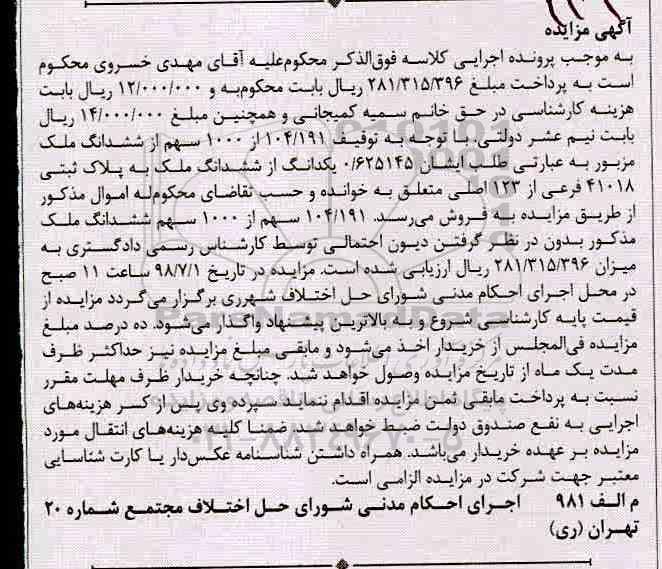 آگهی مزایده
به موجب پرونده اجرایی کلاسه فوق‌الذکر محکوم‌علیه آقای مهدی خسروی محکوم
است به پرداخت مبلغ ۲۸۱/۳۱۵/۳۹۶ ریال بابت محکوم‌به و ۱۲/۰۰۰/۰۰۰ ریال بابت
هزینه کارشناسی در حق خانم سمیه کمیجانی و همچنین مبلغ ۱۴/۰۰۰/۰۰۰ ریال
بابت نیم عشر دولتی، با توجه به توقیف ۱۰۴/۱۹۱ از ۱۰۰۰ سهم از ششدانگ ملک
مزبور به عبارتی طلب ایشان ۰/۶۲۵۱۴۵ یکدانگ از ششدانگ ملک به پلاک ثبتی
۴۱۰۱۸ فرعی از ۱۲۳ اصلی متعلق به خوانده و حسب تقاضای محکوم‌له اموال مذکور
از طریق مزایده به فروش می‌رسد. ۱۰۴/۱۹۱ سهم از ۱۰۰۰ سهم ششدانگ ملک
مذکور بدون در نظر گرفتن دیون احتمالی توسط کارشناس رسمی دادگستری به
میزان ۲۸۱/۳۱۵/۳۹۶ ریال ارزیابی شده است. مزایده در تاریخ ۹۸/۷/۱ ساعت ۱۱ صبح
در محل اجرای احکام مدنی شورای حل اختلاف شهرری برگزار می‌گردد مزایده از
قیمت پایه کارشناسی شروع و به بالاترین پیشنهاد واگذار می‌شود. ده درصد مبلغ
مزایده فی‌المجلس از خریدار اخذ می‌شود و مابقی مبلغ مزایده نیز حداکثر ظرف
مدت یک ماه از تاریخ مزایده وصول خواهد شد. چنانچه خریدار ظرف مهلت مقرر
نسبت به پرداخت مابقی ثمن مزایده اقدام ننماید سپرده وی پس از کسر هزینه‌های
اجرایی به نفع صندوق دولت ضبط خواهد شد، ضمنا کلیه هزینه‌های انتقال مورد
مزایده بر عهده خریدار می‌باشد. همراه داشتن شناسنامه عکس‌دار یا کارت شناسایی
معتبر جهت شرکت در مزایده الزامی است.
م الف ۹۸۱ اجرای احکام مدنی شورای حل اختلاف مجتمع شماره ۲۰
تهران (ری)
ParsNamadData
۰۲۱-۸۸۳۴۹۶۷۰-۵